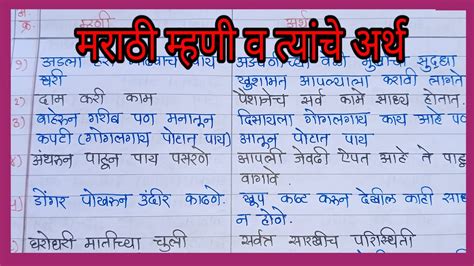 अ. क्र. म्हणी अर्थ
मराठी म्हणी व त्यांचे अर्थ
१) अडला हरी पाय सुद्धा
धरी खुशामत आपल्याला करावी लागते
२) दाम करी काम पैशानेच सर्व कामे साध्य होतात.
३) बाहरुन गरीब पण मनातून दिसायला गोगलगाय काय आहे पण
कपटी (गोगलगाय पोटात पाय) आतून पोटात पाय
४) अंथरुण पाहून पाय पसरणे आपली जेवढी ऐपत आहे ते पाहून
वागावे.
५) डोंगर पोखरुन उंदीर काढणे. खूप कष्ट करुन देखील काही साध्य
न होणे.
घरोघरी मातीच्या चुली सर्वत्र सारखीच परिस्थिती